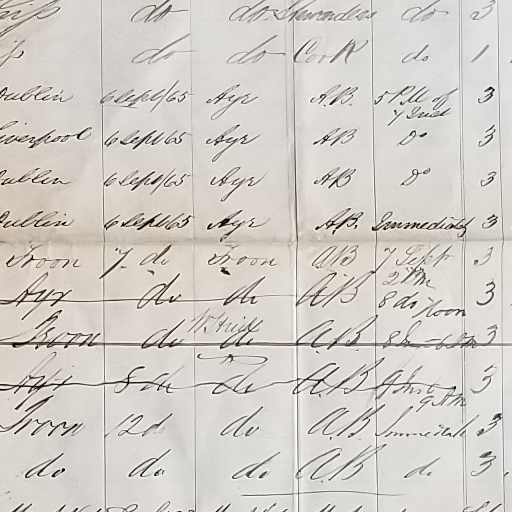 Ship do do Stewardess do 3
do do Cook do 1
Dublin 6 Sept/65 Ayr A.B. 5 P.M. of 3
7 Inst
Liverpool 6 Sept 65 Ayr AB Do 3
Dublin 6 Sept/65 Ayr AB Do 3
Dublin 6 Sept 65 Ayr AB. Immediately 3
Troon 7 do Troon AB 7 Sept 3
2 PM
Ayr do do AB 8 do noon 3
Troon do do A.B. 3
Ayr 8 do do AB 3
9 AM
Troon 12 do do A.B. Immediate 3
do do do AB do 3